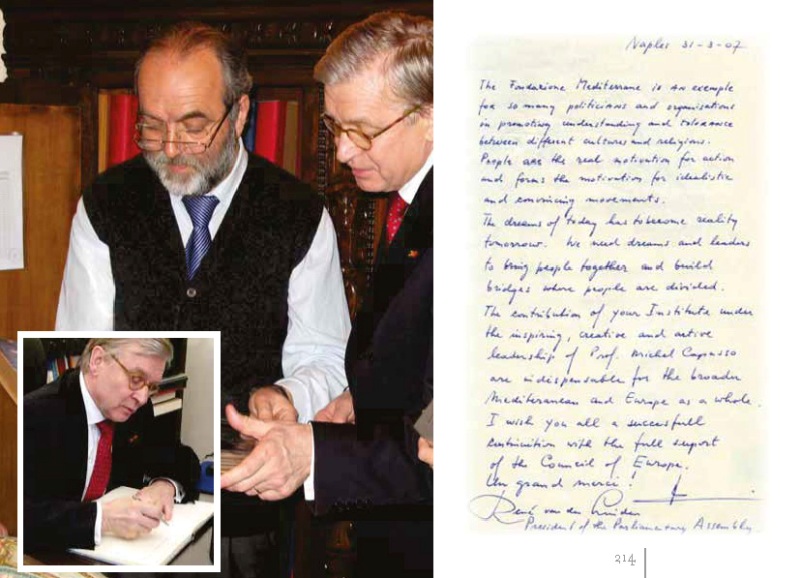 Naples 31-3-07
The Fondazione Mediterraneo is an exemple
for so many politicians and organisations
in promoting understanding and tolerance
between different cultures and religions.
People are the real motivation for action
and forms the motivation for idealistic
and convincing movements.
The dreams of today has to become reality
tomorrow. We need dreams and leaders
to bring people together and build
bridges where people are divided.
The contribution of your Institute under
the inspiring, creative and active
leadership of Prof. Michel Capasso
are indispensable for the broader
Mediterranean and Europe as a whole.
I wish you all a successfull
continuition with the full support
of the Council of Europe.
Un grand merci!
René van der Linden
President of the Parliamentary Assembly
214